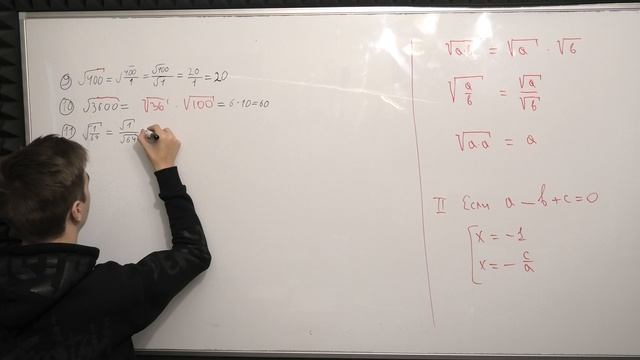 ⑨ √400 = √400/1 = √400/√1 = 20/1 = 20
⑩ √3600 = √36 · √100 = 6·10=60
⑪ √1/64 = √1/√64
√a·b = √a · √b
√a/b = √a/√b
√a·a = a
II Если a – b + c = 0
[ x = -1
x = - c/a